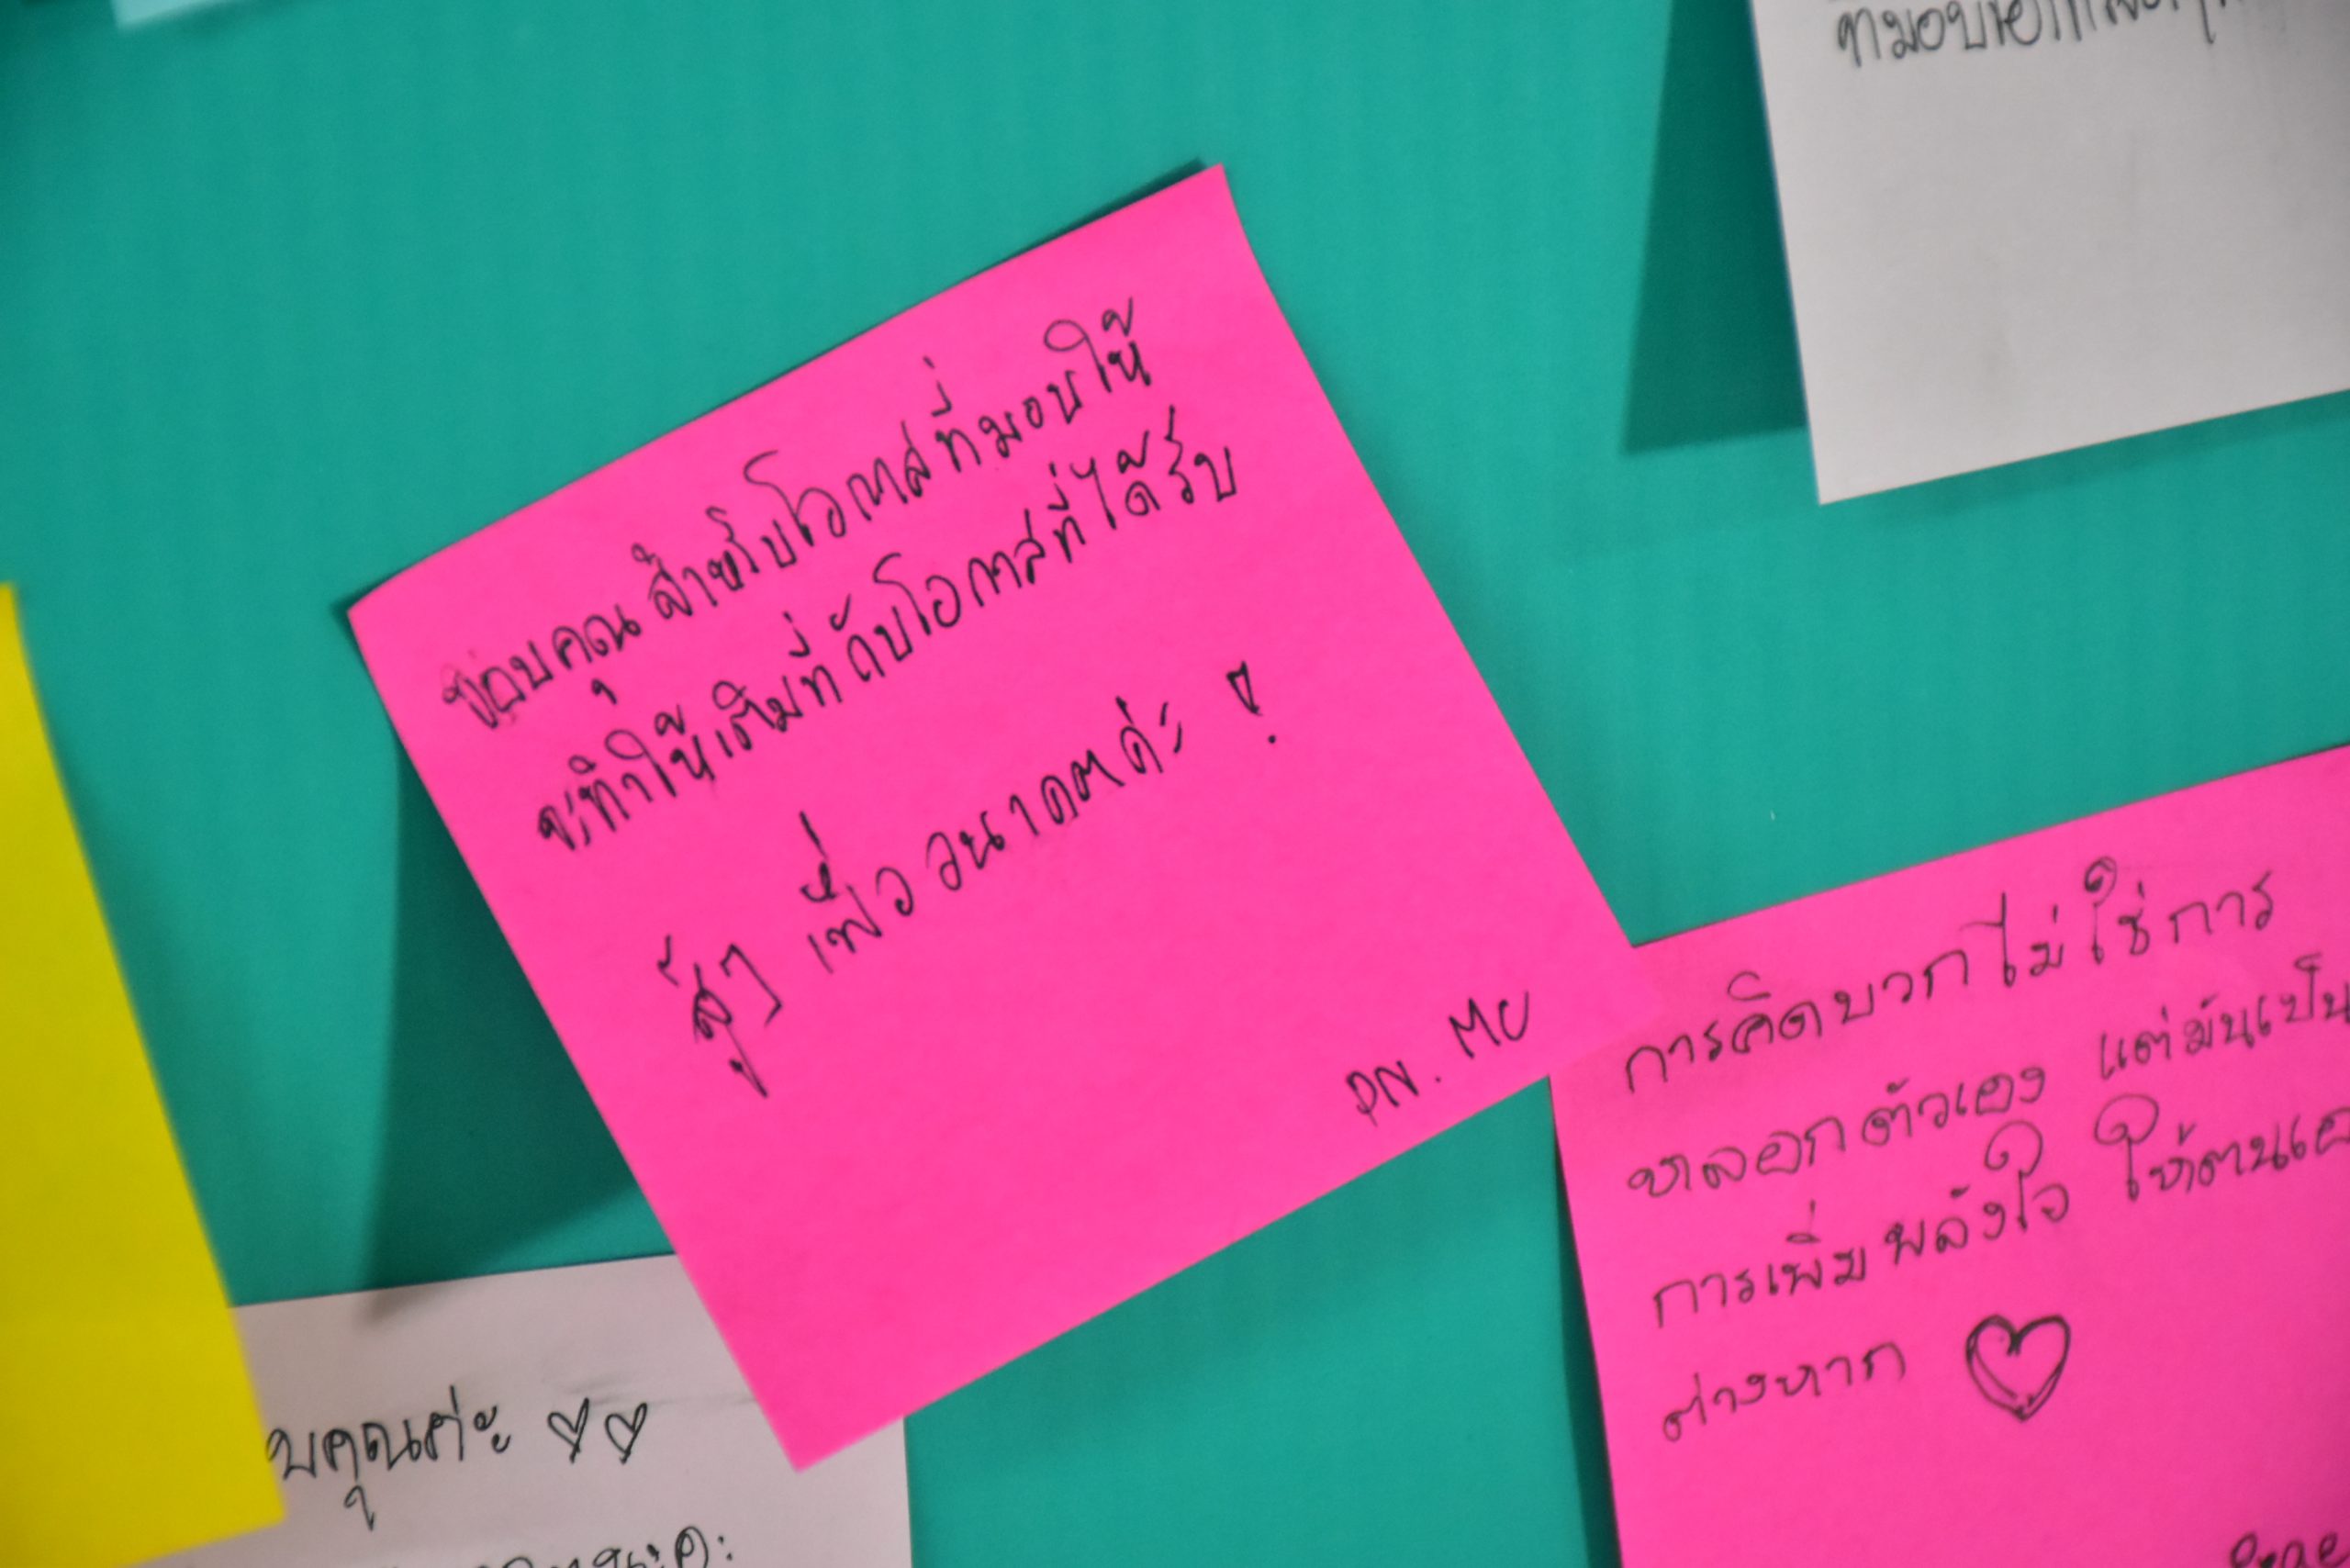 ขอบคุณ สำหรับโอกาสที่มอบให้
จะทำให้เต็มที่กับโอกาสที่ได้รับ
สู้ๆ เพื่ออนาคตค่ะ !
PN. MU
การคิดบวกไม่ใช่การ
หลอกตัวเอง แต่มันเป็น
การเพิ่มพลังใจ ให้ตนเอ
ต่างหาก ♡
บคุณค่ะ ♡♡